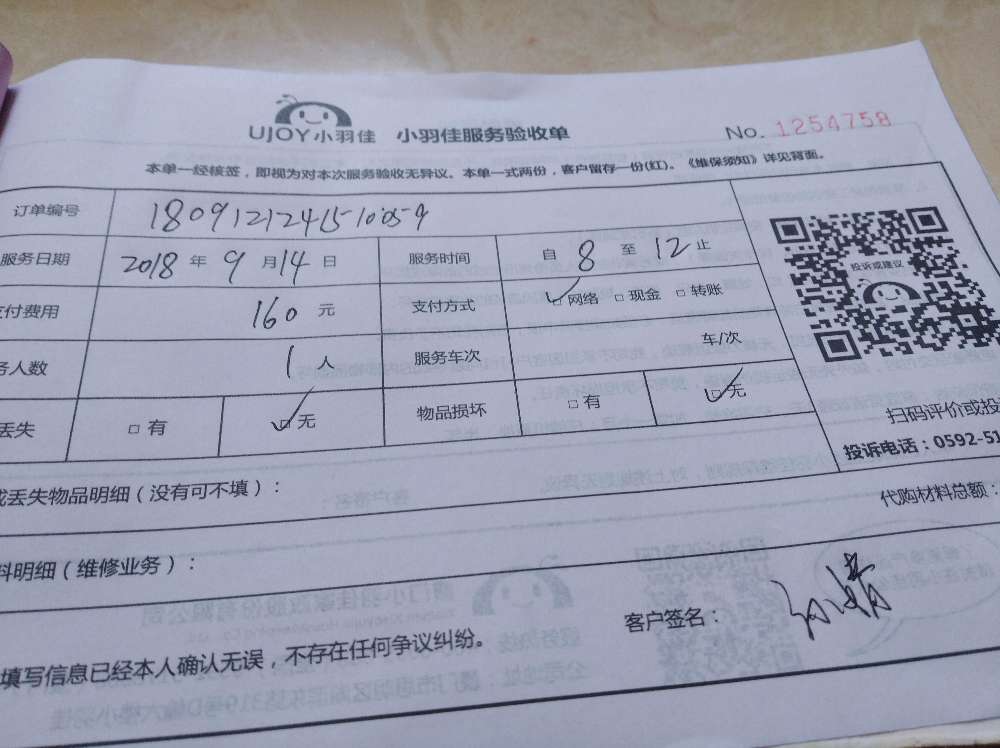 UJOY小羽佳 小羽佳服务验收单 No. 1254758
本单一经核签，即视为对本次服务验收无异议。本单一式两份，客户留存一份(红)。《维保须知》详见背面。
订单编号 180912124151005 9
服务日期 2018 年 9 月 14 日 服务时间 自 8 至 12 止
投诉或建议
付费用 160 元 支付方式 ☑ 网络 □ 现金 □ 转账
人数 1 人 服务车次 车/次
丢失 □ 有 ☑ 无 物品损坏 □ 有 ☑ 无
扫码评价或投
投诉电话：0592-51
丢失物品明细（没有可不填）：
代购材料总额：
料明细（维修业务）：
客户签名：
填写信息已经本人确认无误，不存在任何争议纠纷。